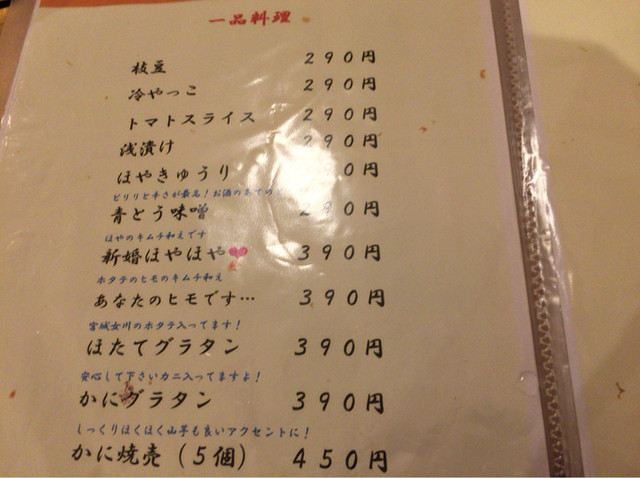 一品料理
枝豆 290円
冷やっこ 290円
トマトスライス 290円
浅漬け 290円
ほやきゅうり 290円
ピリリと辛さが最高!お酒のあての
青とう味噌 290円
ほやのキムチ和えです
新婚ほやほや❤ 390円
ホタテのヒモのキムチ和え
あなたのヒモです… 390円
宮城女川のホタテ入ってます!
ほたてグラタン 390円
安心して下さいカニ入ってますよ!
かにグラタン 390円
しっくりほくほく山芋も良いアクセントに!
かに焼売(5個) 450円